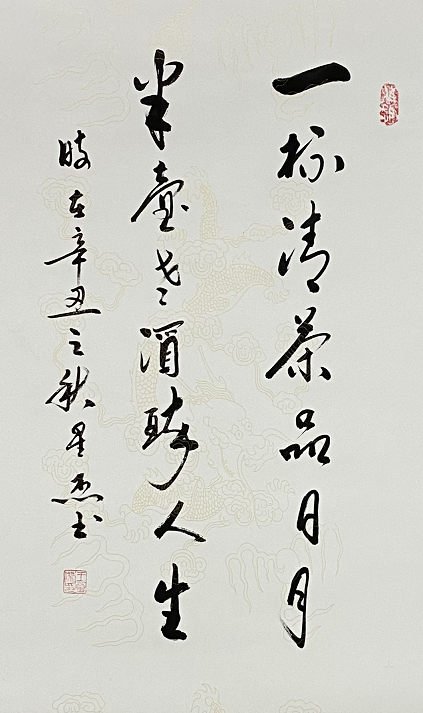 一杯清茶品日月
半壺老酒醉人生
時在辛丑之秋星杰书